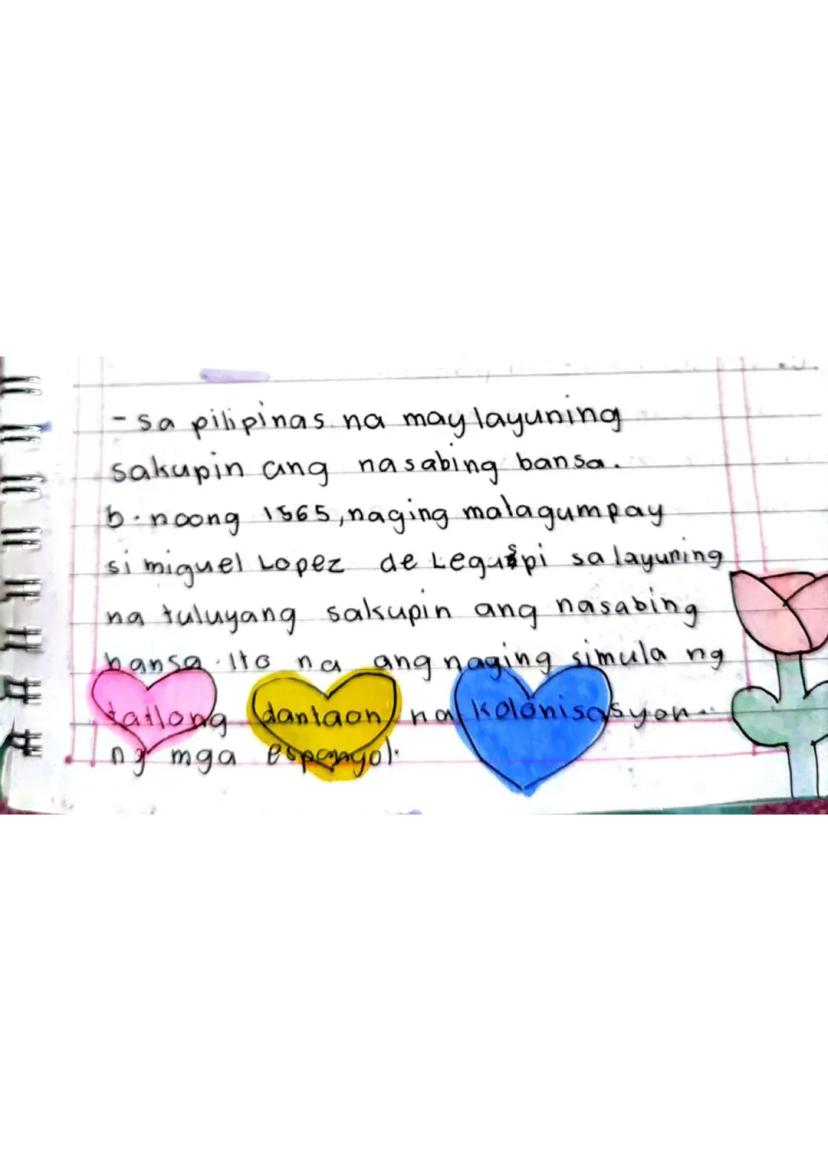 - sa pilipinas na may layuning
sakupin ang nasabing bansa.
b. noong 1565, naging malagumpay
si miguel Lopez de Leguspi sa layuning
na tuluyang sakupin ang nasabing
bansa. Ito na ang naging simula ng
tatlong dantaon na kolonisasyon.
ng mga espanyol.